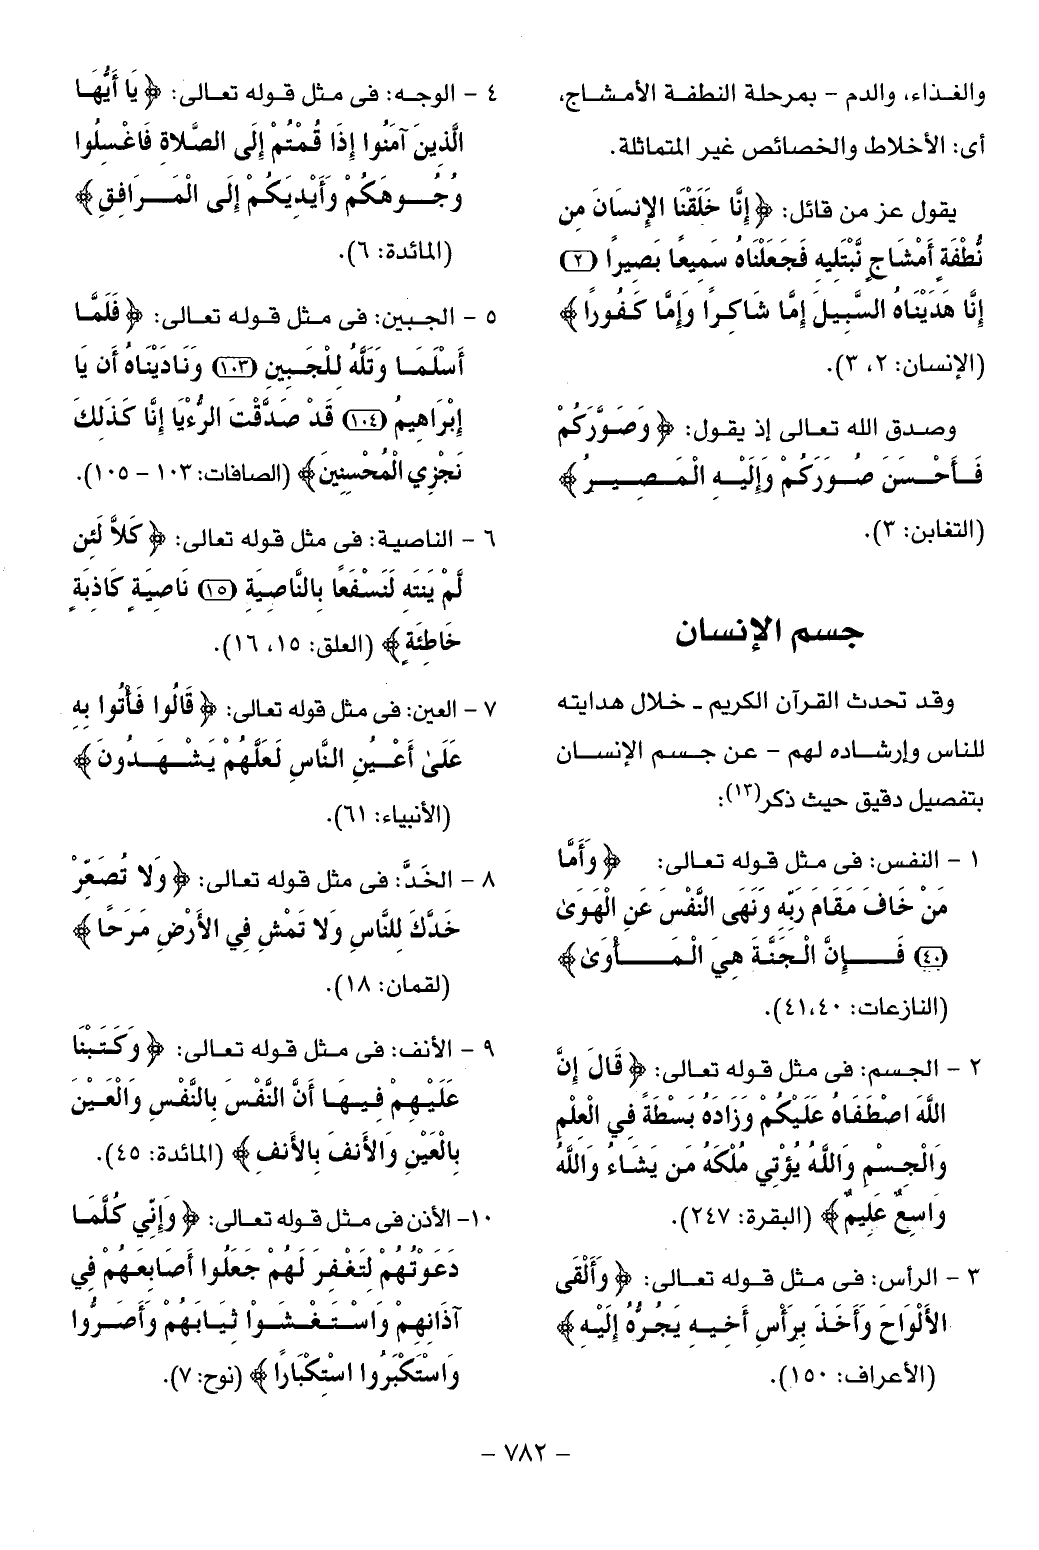 والغذاء، والدم - بمرحلة النطفة الأمشاج،
أى: الأخلاط والخصائص غير المتماثلة.
يقول عز من قائل: ﴿ إِنَّا خَلَقْنَا الإِنسَانَ مِن
نُّطْفَةٍ أَمْشَاجٍ نَّبْتَلِيهِ فَجَعَلْنَاهُ سَمِيعًا بَصِيرًا (٢)
إِنَّا هَدَيْنَاهُ السَّبِيلَ إِمَّا شَاكِرًا وَإِمَّا كَفُورًا ﴾
(الإنسان: ٢، ٣).
وصدق الله تعالى إذ يقول: ﴿ وَصَوَّرَكُمْ
فَأَحْسَنَ صُوَرَكُمْ وَإِلَيْهِ الْمَصِيرُ ﴾
(التغابن: ٣).
جسم الإنسان
وقد تحدث القرآن الكريم - خلال هدايته
للناس وإرشاده لهم - عن جسم الإنسان
بتفصيل دقيق حيث ذكر(١٣):
١ - النفس: فى مثل قوله تعالى: ﴿ وَأَمَّا
مَنْ خَافَ مَقَامَ رَبِّهِ وَنَهَى النَّفْسَ عَنِ الْهَوَىٰ
(٤٠) فَإِنَّ الْجَنَّةَ هِيَ الْمَأْوَىٰ ﴾
(النازعات: ٤٠،٤١).
٢ - الجسم: فى مثل قوله تعالى: ﴿ قَالَ إِنَّ
اللَّهَ اصْطَفَاهُ عَلَيْكُمْ وَزَادَهُ بَسْطَةً فِي الْعِلْمِ
وَالْجِسْمِ وَاللَّهُ يُؤْتِي مُلْكَهُ مَن يَشَاءُ وَاللَّهُ
وَاسِعٌ عَلِيمٌ ﴾ (البقرة: ٢٤٧).
٣ - الرأس: فى مثل قوله تعالى: ﴿ وَأَلْقَى
الأَلْوَاحَ وَأَخَذَ بِرَأْسِ أَخِيهِ يَجُرُّهُ إِلَيْهِ ﴾
(الأعراف: ١٥٠).
٤ - الوجه: فى مثل قوله تعالى: ﴿ يَا أَيُّهَا
الَّذِينَ آمَنُوا إِذَا قُمْتُمْ إِلَى الصَّلاةِ فَاغْسِلُوا
وُجُوهَكُمْ وَأَيْدِيَكُمْ إِلَى الْمَرَافِقِ ﴾
(المائدة: ٦).
٥ - الجبين: فى مثل قوله تعالى: ﴿ فَلَمَّا
أَسْلَمَا وَتَلَّهُ لِلْجَبِينِ (١٠٣) وَنَادَيْنَاهُ أَن يَا
إِبْرَاهِيمُ (١٠٤) قَدْ صَدَّقْتَ الرُّءْيَا إِنَّا كَذَلِكَ
نَجْزِي الْمُحْسِنِينَ ﴾ (الصافات: ١٠٣ - ١٠٥).
٦ - الناصية: فى مثل قوله تعالى: ﴿ كَلاَّ لَئِن
لَّمْ يَنتَهِ لَنَسْفَعًا بِالنَّاصِيَةِ (١٥) نَاصِيَةٍ كَاذِبَةٍ
خَاطِئَةٍ ﴾ (العلق: ١٥، ١٦).
٧ - العين: فى مثل قوله تعالى: ﴿ قَالُوا فَأْتُوا بِهِ
عَلَىٰ أَعْيُنِ النَّاسِ لَعَلَّهُمْ يَشْهَدُونَ ﴾
(الأنبياء: ٦١).
٨ - الخَدَّ: فى مثل قوله تعالى: ﴿ وَلا تُصَعِّرْ
خَدَّكَ لِلنَّاسِ وَلا تَمْشِ فِي الأَرْضِ مَرَحًا ﴾
(لقمان: ١٨).
٩ - الأنف: فى مثل قوله تعالى: ﴿ وَكَتَبْنَا
عَلَيْهِمْ فِيهَا أَنَّ النَّفْسَ بِالنَّفْسِ وَالْعَيْنَ
بِالْعَيْنِ وَالأَنفَ بِالأَنفِ ﴾ (المائدة: ٤٥).
١٠- الأذن فى مثل قوله تعالى: ﴿ وَإِنِّي كُلَّمَا
دَعَوْتُهُمْ لِتَغْفِرَ لَهُمْ جَعَلُوا أَصَابِعَهُمْ فِي
آذَانِهِمْ وَاسْتَغْشَوْا ثِيَابَهُمْ وَأَصَرُّوا
وَاسْتَكْبَرُوا اسْتِكْبَارًا ﴾ (نوح: ٧).
- ٧٨٢ -